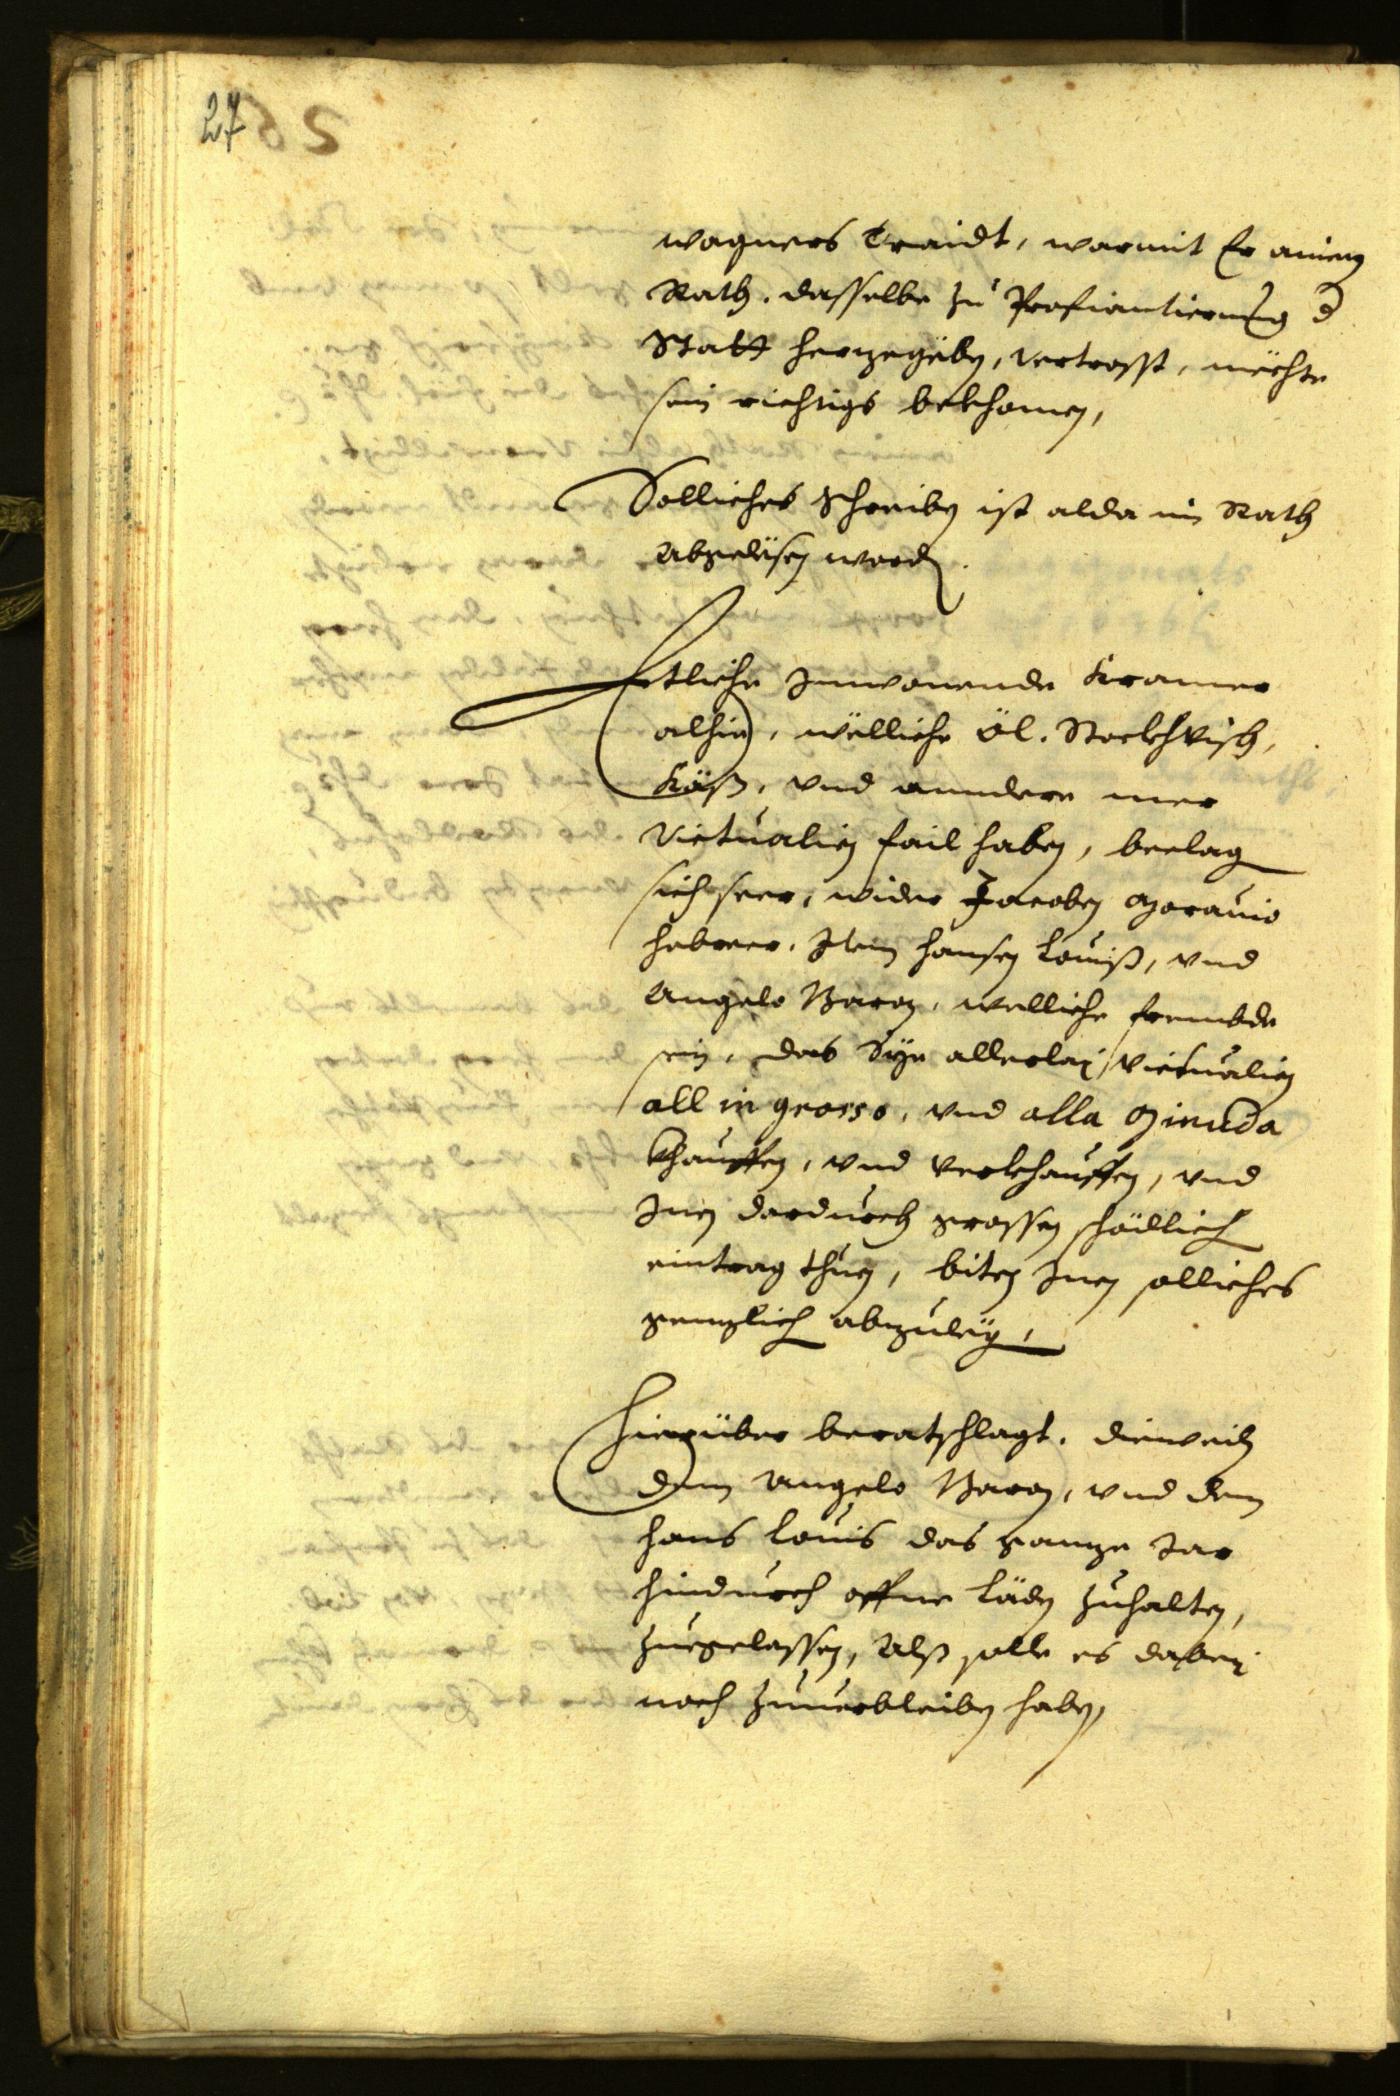 27
wagners Traidt, warmit Er ainem
Rath, dasselbe zu Profiantierung d
Statt herzegeben, vertresst, mechte
sein richtigs bekhomen,
Solliches schreiben ist alda im Rath
abgelesen word.
Etliche Innwonende Kramer
alhie, wëlliche Öl, Stockhvisch,
Käß, und anndere mer
Victualien fail haben, beclag
sich seer, wider Jacoben
hebreer, Item Hansen Louiß, vnd
Angelo Baron, welliche frembde
sein, das Sye allerlaj victualien
all in grosso, vnd alla minuda
khauffen, vnd verkhauffen, vnd
Inen dardurch grossen schädlich
eintrag thuen, biten Inen solliches
genzlich abzuleg,
Hierüber beratschlagt, dieweil
dem Angelo Baron, vnd dem
Hans Louis das ganze Jar
hindurch offne Läden zuhalten,
zuegelassen, Alß solle es dabej
noch zuuerbleiben haben,